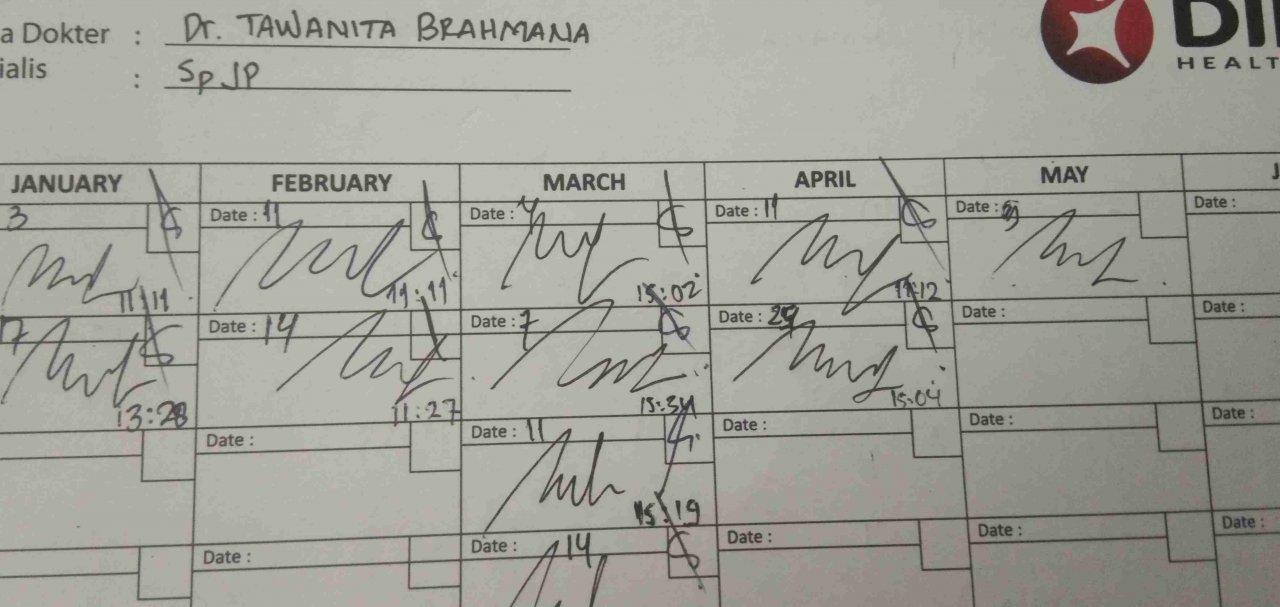 a Dokter : Dr. TAWANITA BRAHMANA
ialis : Sp JP
DI
HEALT
JANUARY FEBRUARY MARCH APRIL MAY J
3 Date : 11 Date : 4 Date : 11 Date : Date :
11:11 11:11 15:02 11:12
17 Date : 14 Date : 7 Date : 29 Date : Date :
13:28 11:27 15:34 15:04
Date : Date : 11 Date : Date : Date :
15:19
Date : Date : 14 Date : Date : Date :